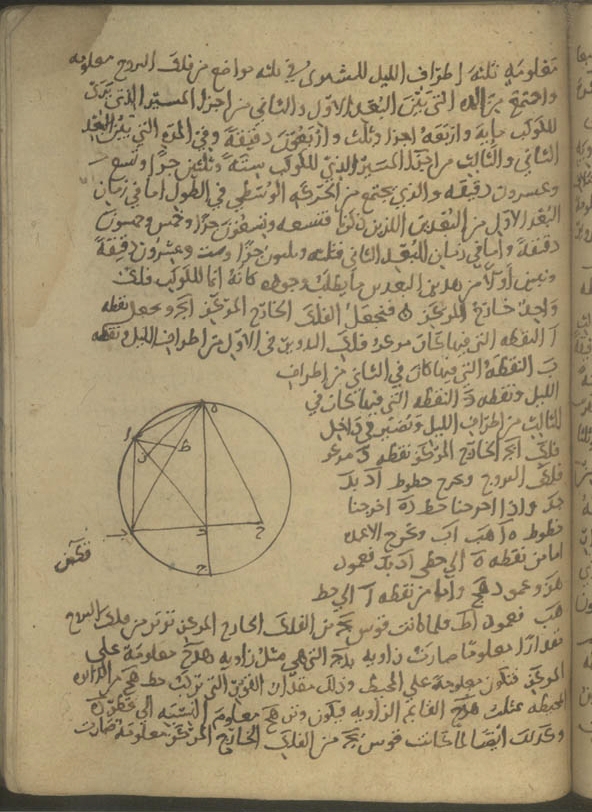 معلومة ثلثة اطراف الليل للمشترى في ثلثة مواضع من فلك البروج معلومة
واجتمع من التى بين البعد الاول والثانى من اجزا المسير الذى يرى
للكوكب ماية واربعة اجزا وثلث واربعون دقيقة وفى المدة التى بين البعد
الثانى والثالث من اجزا المسير الذى للكوكب ستة وثلثين جزا وتسع
وعشرون دقيقة والذى يجتمع من الحركة الوسطى في الطول اما في زمان
البعد الاول من البعدين اللذين ذكرنا فتسعة وتسعون جزا وخمس وخمسون
دقيقة واما في زمان البعد الثانى فثلثة وثلثون جزا وست وعشرون دقيقة
ونبين اولا من هذين البعدين ما يطلب وجوده كانه انما للكوكب فلك
واحد خارج المركز ه فنجعل الفلك الخارج المركز ابج ونجعل نقطة
ا النقطة التى فيها كان مركز فلك التدوير في الاول من اطراف الليل ونقطة
ب النقطة التى فيها كان في الثانى من اطراف
الليل ونقطة ج النقطة التى فيها كان في
الثالث من اطراف الليل ونصير في داخل
فلك ابج الخارج المركز نقطة د مركز
فلك البروج ونخرج خطوط اد بد
جد واذا اخرجنا خط ده اخرجنا
خطوط ه ا هب اب ونخرج الاعمدة
اما من نقطة ه الى خطى اد بد فعمود
هز وعمود هح واما من نقطة ا الى خط
هب فعمود اط فلما كانت قوس بج من الفلك الخارج المركز توتر من فلك البروج
مقدارا معلوما صارت زاوية بدج التى هى مثل زاوية هدح معلومة على
المركز فتكون معلومة على المحيط وذلك مقدار القوس التى تركب خط هح من الدائرة
المحيطة بمثلث هدح القائم الزاوية فيكون وتر هح معلوم النسبة الى قطر ده
وكذلك ايضا لما كانت قوس بج من الفلك الخارج المركز معلومة صارت